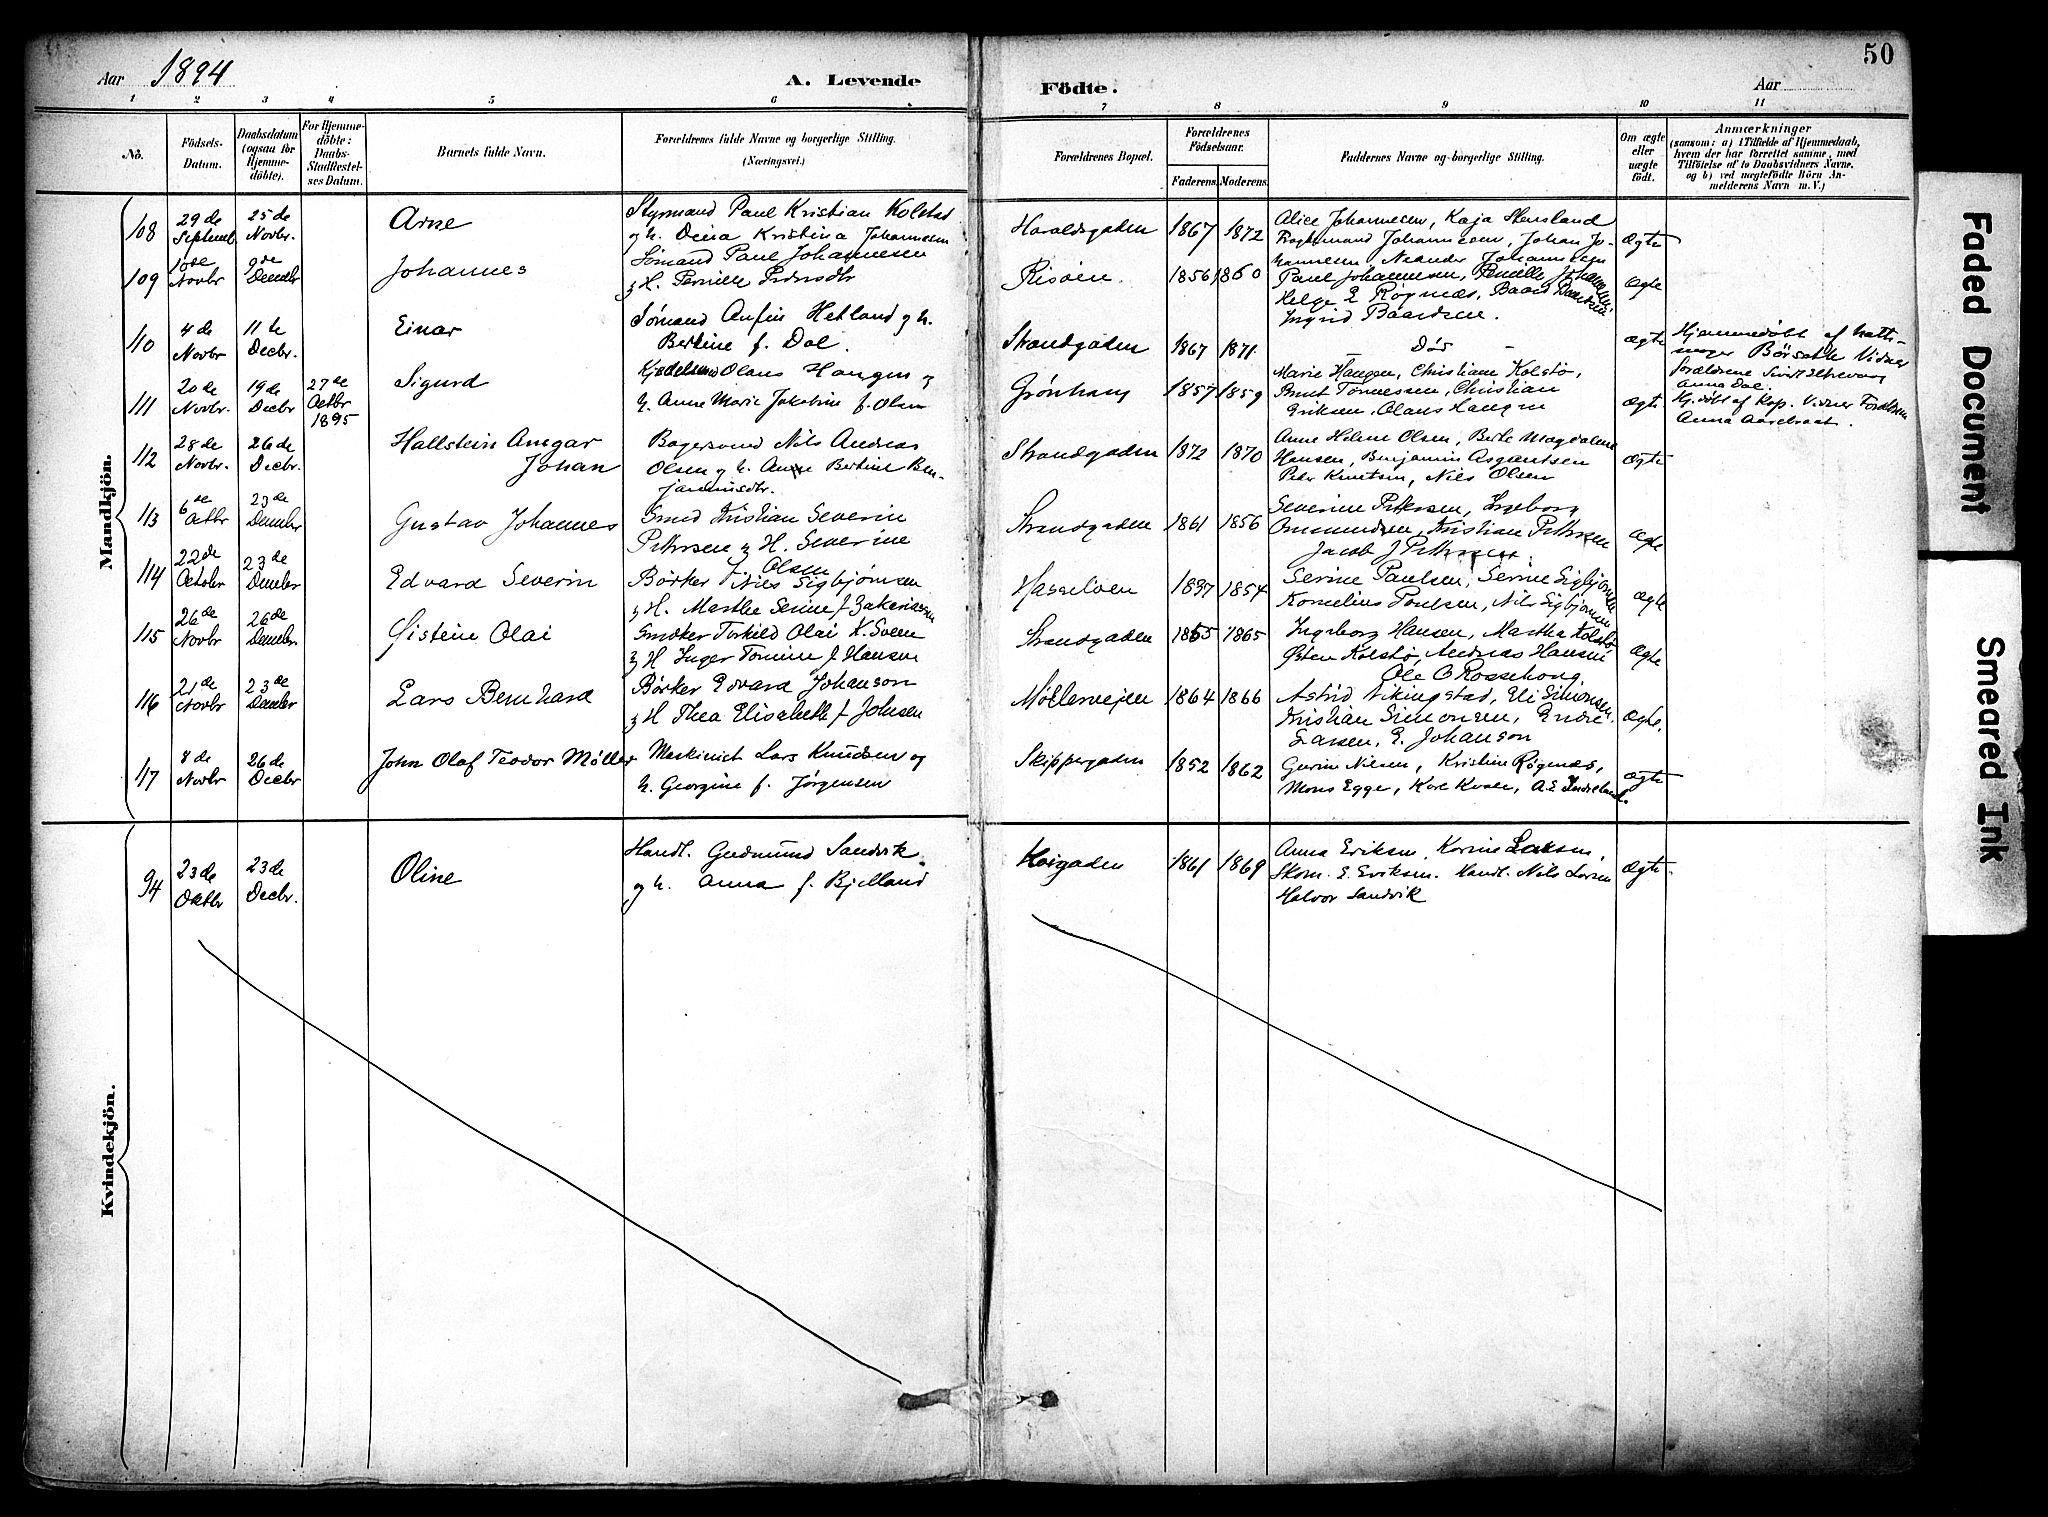 50
Aar 1894
A. Levende
Födte.
Aar
1 2 3 4 5 6 7 8 9 10 11
No.
Födsels-Datum.
Daabsdatum (ogsaa for Hjemme-döbte).
For Hjemme-döbte: Daabs-Stadfæstel-ses Datum.
Barnets fulde Navn.
Forældrenes fulde Navne og borgerlige Stilling.
(Næringsvei.)
Forældrenes Bopæl.
Forældrenes Födselsaar.
Faderens. Moderens.
Faddernes Navne og borgerlige Stilling.
Om ægte eller uægte födt.
Anmærkninger
(saasom: a) i Tilfælde af Hjemmedaab,
hvem der har forrettet samme, med
Tilföielse af to Daabsvidners Navne.
og b) ved uægtefödte Börn An-
melderens Navn m. V.)
Mandkjön.
108 29de Septemb. 25de Novbr. Arne
Styrmand Paul Kristian Kolstad
og h. Dina Kristina Johannesen
Haraldsgaden 1867 1872
Alice Johannesen, Kaja Stensland
Johannesen, Johan Jo-
hannesen Neander Johannesen
Ægte
109 10de Novbr 9de Decmbr Johannes
Sömand Paul Johannesen
& H. Pernille Pedersdtr
Risöen. 1856 1860
Paul Johannesen, Pernille Johannesen
Helge E Røgnæs, Baard Baardsen
Ingrid Baardsen.
Ægte
110 4de Novbr 11te Decbr. Einar
Sömand Anfin Hetland og h.
Bertine f. Dal.
Strandgaden 1867 1871.
Døs
Ægte
Hjemmedøbt af
Børsette Vidner
forældrene
Anna Dal.
111 20de Novbr. 19de Decbr 27de Octbr 1895 Sigurd
Olaus Haugen og
h. Anne Marie Jakobine f. Olsen
Grønhaug 1857 1859
Marie Haugen, Christian Kolstø,
Bernt Tønnessen, Christian
Eriksen, Olaus Haugen
Ægte
Hj. døbt af Kap. Vidner
Anna
112 28de Novbr. 26de Decbr. Hallstein Ansgar
Johan
Bagersvend Nils Andreas
Olsen og h. Anne Bertine Ben-
jaminsdtr.
Strandgaden 1872 1870
Anne Helene Olsen, Berte Magdalene
Hansen, Benjamin Asgautsen
Peder Knutsen, Nils Olsen
Ægte
113 6de Octbr 23de Decmbr Gustav Johannes
Smed Kristian Severin
Pettersen & H. Severine
f Olsen
Strandgaden 1861 1856
Severine Pettersen, Ingeborg
Omundsen, Kristian Pettersen
Jacob J Pettersen.
Ægte
114 22de Octobr 23de Decmbr Edvard Severin
Børker Nils Sigbjørnsen
& H. Marthe Serine f Zakeriassen
Hasseløen 1837 1854
Serine Paulsen, Serine Sigbjørnsen
Kornelius Poulsen, Nils Sigbjørnsen
Ægte
115 26de Novbr 26de Decmbr Øistein Olai
Snedker Torkild Olai K. Sveen
& H Inger Tomine f Hansen
Strandgaden 1865 1865
Ingeborg Hansen, Martha Kolstø
Østen Kolstø, Andreas Hansen
Ole O Rossehaug.
Ægte
116 21de Novbr 23de Decmbr Lars Bernhard
Børker Edvard Johanson
& H Thea Elisabeth f Johnsen
Møllervejen 1864 1866
Astrid Vikingstad, Eli Simonsen,
Kristian Simonsen, Endre
Larsen, E. Johanson
Ægte.
117 8de Novbr 26de Decbr John Olaf Teodor Møller
Maskinist Lars Knudsen og
h. Georgine f. Jørgensen
Skippergaden 1852 1862
Gurine Nilsen, Kristine Røgenæs,
Mons Egge, A.E.
Ægte
Kvindekjön.
94 23de Oktbr 23de Decbr. Oline
Handl. Gudmund Sandvik
og h. Anna f. Bjelland
Høigaden 1861 1869
Anna Eriksen, Karine Larsen,
Skom. E. Eriksen. Handl. Nils Larsen
Halvor Sandvik
Ægte.
Faded Document
Smeared Ink